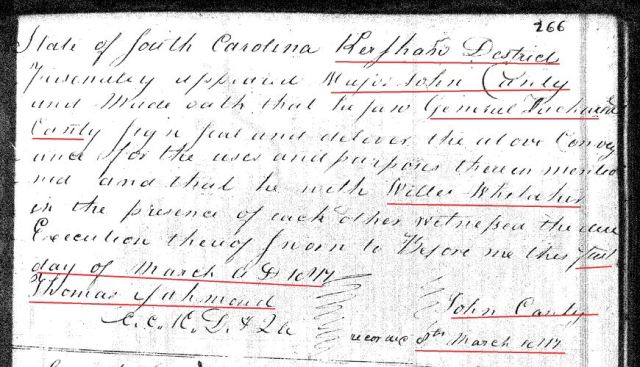 266
State of South Carolina Kershaw District
Personaley appeared Major John Canty
and Made oath that he saw General Zachariah
Canty Sign Seal and deliver the above Convey
ance for the uses and purposes therein mentio
ned and that he with Willis Whitaker
in the presence of each other witnessed the due
Execution thereof Sworn to Before me this first
day of March A D 1817
Thomas
John Canty
recorded 8th March 1817